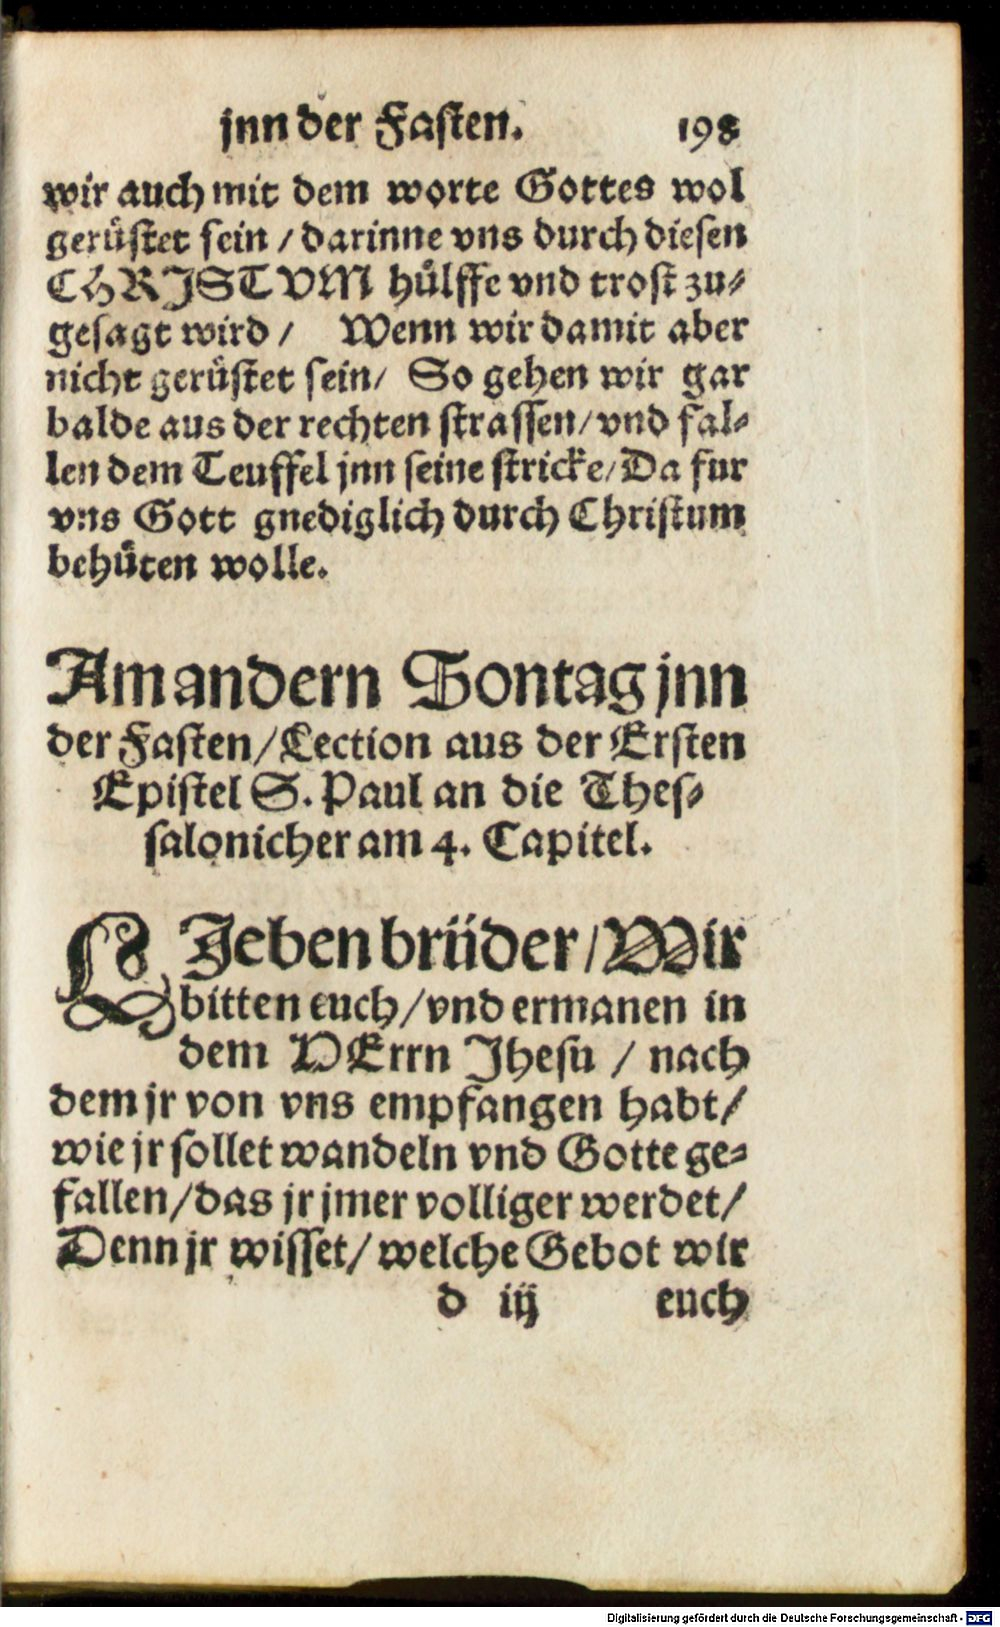 jnn der Fasten. 198
wir auch mit dem worte Gottes wol
gerüstet sein / darinne vns durch diesen
CHRJSTVM hülffe vnd trost zu⸗
gesagt wird / Wenn wir damit aber
nicht gerüstet sein / So gehen wir gar
balde aus der rechten strassen / vnd fal⸗
len dem Teuffel jnn seine stricke / Da fur
vns Gott gnediglich durch Christum
behüten wolle.
Am andern Sontag jnn
der Fasten / Lection aus der Ersten
Epistel S. Paul an die Thes⸗
salonicher am 4. Capitel.
LJeben brüder / Wir
bitten euch / vnd ermanen in
dem HErrn Jhesu / nach
dem jr von vns empfangen habt /
wie jr sollet wandeln vnd Gotte ge⸗
fallen / das jr jmer volliger werdet /
Denn jr wisset / welche Gebot wir
d iij euch
Digitalisierung gefördert durch die Deutsche Forschungsgemeinschaft - DFG